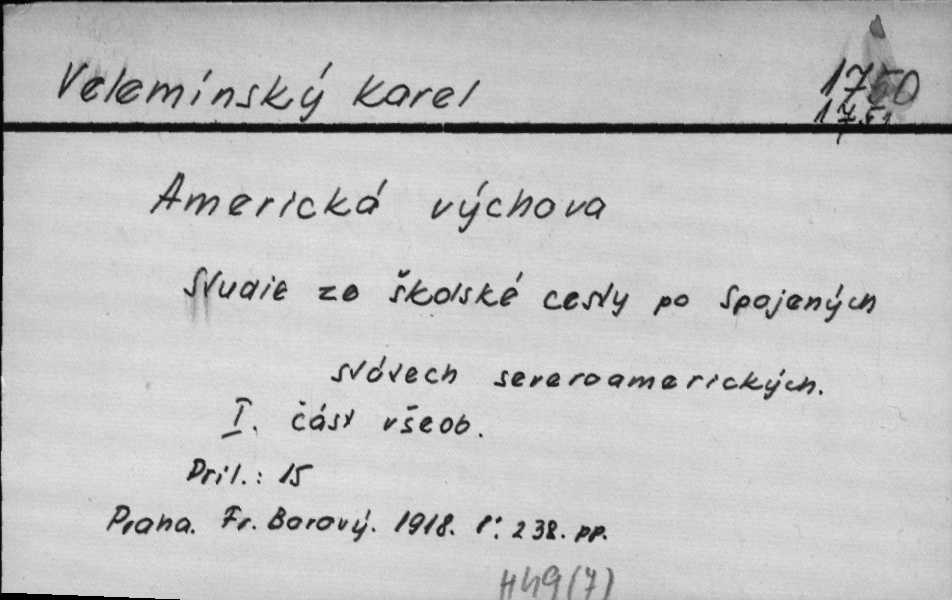 Velemínský Karel 1750
Americká výchova
Studie ze školské cesty po Spojených
státech severoamerických.
I. část všeob.
Pril.: 15
Praha. Fr. Borový. 1918. 238. pp.
H49(7)